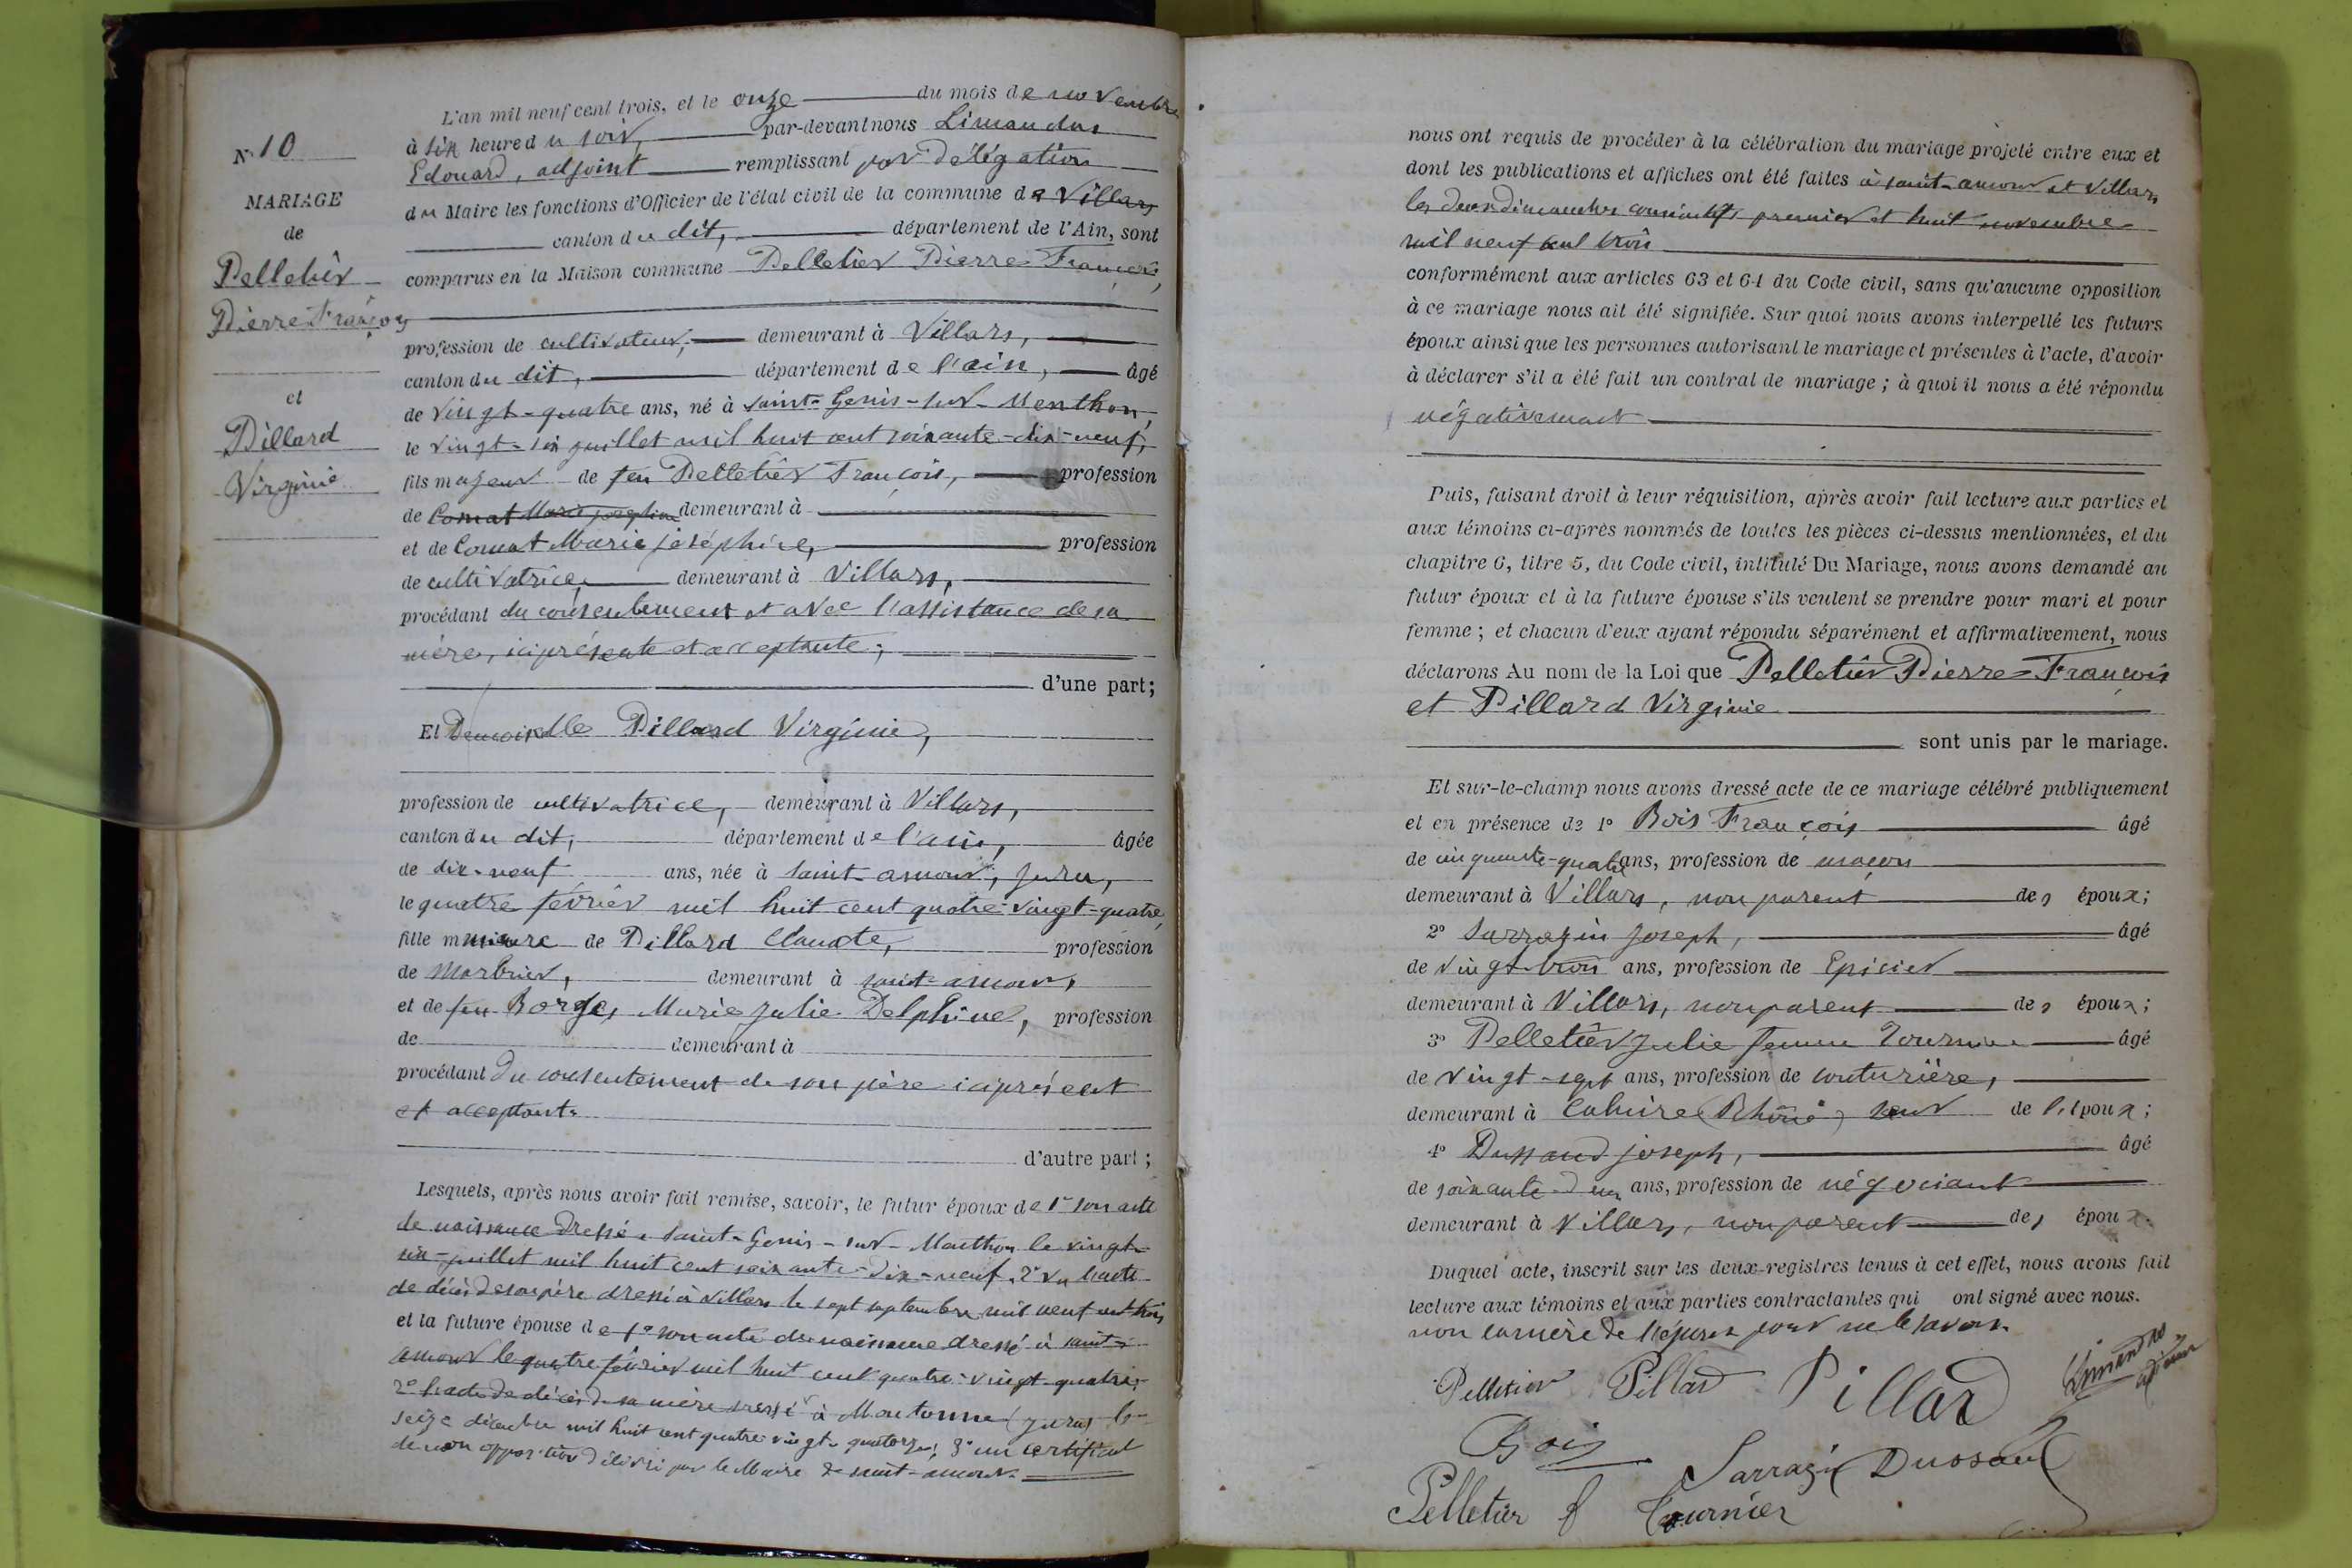 N° 10
MARIAGE
de
Pelletier
Pierre François
et
Pillard
Virginie
L'an mil neuf cent trois, et le onze du mois de novembre
à six heure du soir, par-devant nous Limandas
Edouard, adjoint remplissant par délégation
du Maire les fonctions d'Officier de l'état civil de la commune de Villars
canton du dit, département de l'Ain, sont
comparus en la Maison commune Pelletier Pierre François,
profession de cultivateur, demeurant à Villars,
canton du dit, département de l'ain, âgé
de vingt-quatre ans, né à Saint-Genis-sur-Menthon,
le vingt-six juillet mil huit cent soixante-dix-neuf,
fils majeur de feu Pelletier François, profession
de Comat Marie joséphine demeurant à
et de Comat Marie joséphine, profession
de cultivatrice, demeurant à Villars,
procédant du consentement et avec l'assistance de sa
mère, ici présente et acceptante;
d'une part;
Et Demoiselle Pillard Virginie,
profession de cultivatrice, demeurant à Villars,
canton du dit, département de l'ain, âgée
de dix-neuf ans, née à Saint-amour, jura,
le quatre février mil huit cent quatre-vingt-quatre,
fille mineure de Pillard Claude, profession
de Marbrier, demeurant à saint-amour,
et de feu Borge, Marie Julie Delphine, profession
de demeurant à
procédant du consentement de son père ici présent
et acceptant.
d'autre part;
Lesquels, après nous avoir fait remise, savoir, le futur époux de 1° son acte
de naissance dressé à Saint-Genis-sur-Menthon le vingt-
six-juillet mil huit cent soixante-dix-neuf. 2° de l'acte
de décès de son père dressé à Villars le sept septembre mil neuf cent trois
et la future épouse de 1° son acte de naissance dressé à saint-
amour le quatre février mil huit cent quatre-vingt-quatre;
2° l'acte de décès de sa mère dressé à Moutonne (jura) le
seize décembre mil huit cent quatre-vingt-quatorze; 3° un certificat
de non opposition délivré par le Maire de saint-amour.
nous ont requis de procéder à la célébration du mariage projeté entre eux et
dont les publications et affiches ont été faites à saint-amour et Villars
les deux dimanches consécutifs premier et huit novembre
mil neuf cent trois
conformément aux articles 63 et 64 du Code civil, sans qu'aucune opposition
à ce mariage nous ait été signifiée. Sur quoi nous avons interpellé les futurs
époux ainsi que les personnes autorisant le mariage et présentes à l'acte, d'avoir
à déclarer s'il a été fait un contrat de mariage; à quoi il nous a été répondu
négativement
Puis, faisant droit à leur réquisition, après avoir fait lecture aux parties et
aux témoins ci-après nommés de toutes les pièces ci-dessus mentionnées, et du
chapitre 6, titre 5, du Code civil, intitulé Du Mariage, nous avons demandé au
futur époux et à la future épouse s'ils veulent se prendre pour mari et pour
femme; et chacun d'eux ayant répondu séparément et affirmativement, nous
déclarons Au nom de la Loi que Pelletier Pierre-François
et Pillard Virginie
sont unis par le mariage.
Et sur-le-champ nous avons dressé acte de ce mariage célébré publiquement
et en présence de 1° Bois François âgé
de cinquante-quatre ans, profession de maçon
demeurant à Villars, non parent des époux;
2° Sarrazin Joseph, âgé
de vingt-trois ans, profession de Epicier
demeurant à Villars, non parent des époux;
3° Pelletier Julie femme Tournier âgé
de vingt-sept ans, profession de couturière,
demeurant à Caluire (Rhône) sœur de l'époux;
4° Dussaud joseph, âgé
de soixante-deux ans, profession de négociant
demeurant à Villars, non parent des époux.
Duquel acte, inscrit sur les deux registres tenus à cet effet, nous avons fait
lecture aux témoins et aux parties contractantes qui ont signé avec nous.
non la mère de l'époux pour ne le savoir.
Pelletier Pillard Pillard Limandas
adjoint
Bois
Sarrazin Dussaud
Pelletier f Tournier